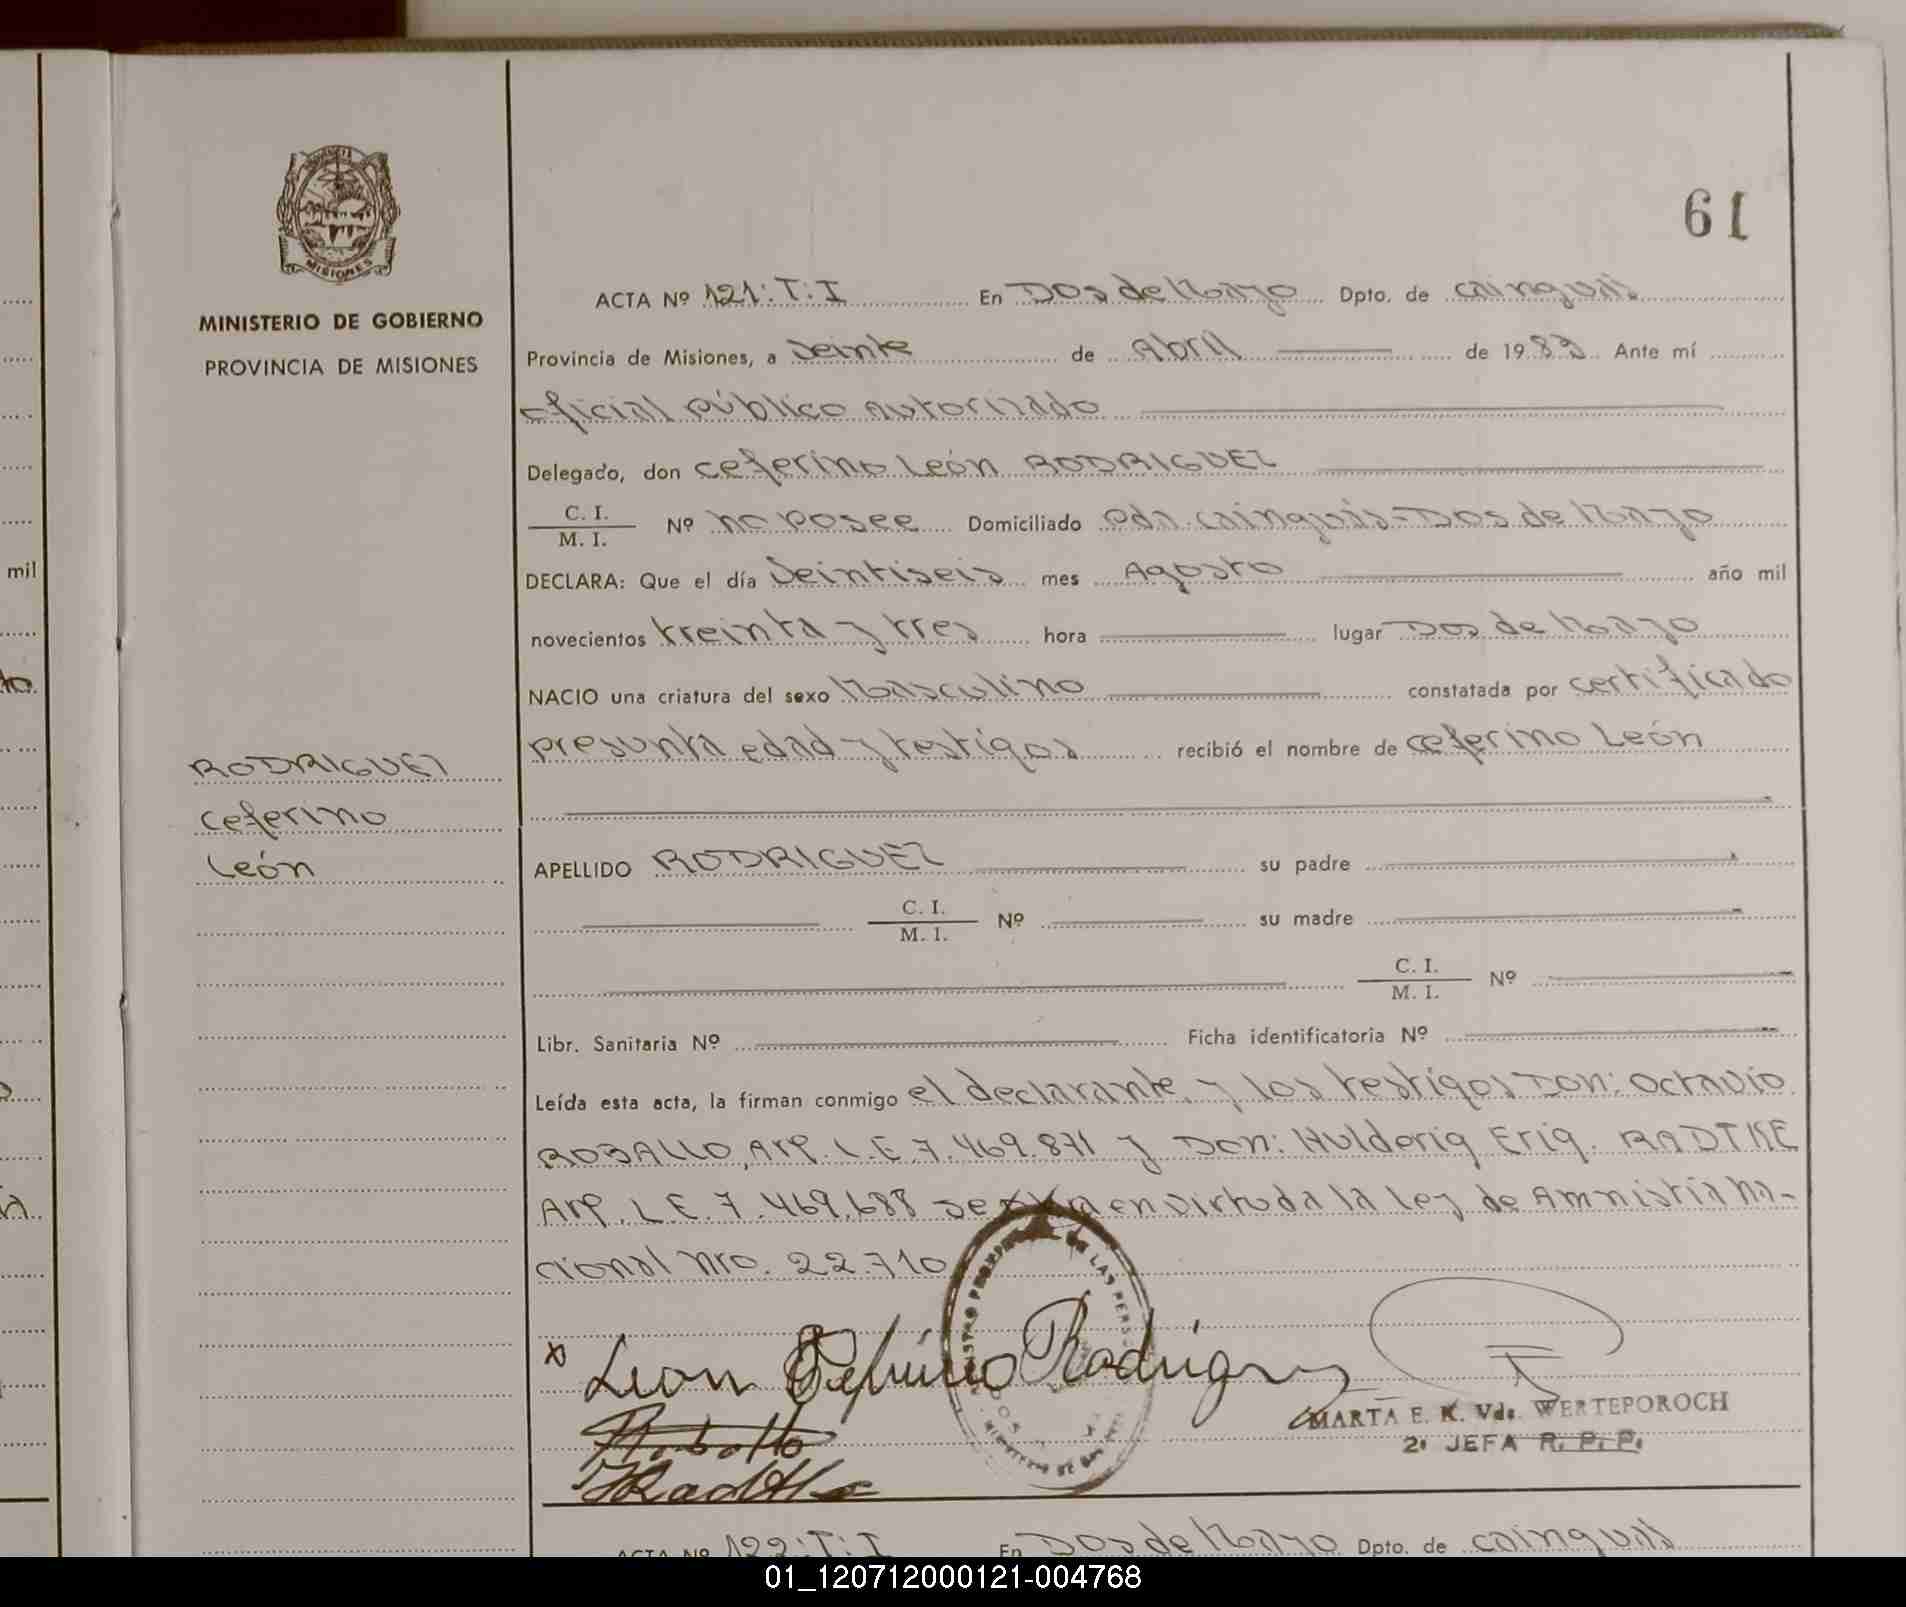 61
MISIONES
MINISTERIO DE GOBIERNO
PROVINCIA DE MISIONES
RODRIGUEZ
Ceferino
León
ACTA Nº 121:T:I En Dos de Mayo Dpto. de Cainguás
Provincia de Misiones, a Veinte de Abril de 1983 Ante mí
Oficial público autorizado
Delegado, don Ceferino León RODRIGUEZ
C. I.
M. I. Nº no posee Domiciliado Pda. Cainguás-Dos de Mayo
DECLARA: Que el día Veintiseis mes Agosto año mil
novecientos treinta y tres hora lugar Dos de Mayo
NACIO una criatura del sexo Masculino constatada por certificado
presunta edad y testigos recibió el nombre de Ceferino León
APELLIDO RODRIGUEZ su padre
C. I.
M. I. Nº su madre
C. I.
M. I. Nº
Libr. Sanitaria Nº Ficha identificatoria Nº
Leída esta acta, la firman conmigo el declarante, y los testigos Don: Octavio
ROBALLO, Arg. L.E. 7.469.871 y Don: Hulderig Erig. RADTKE
Arg. L.E. 7.469.688 en virtud a la Ley de Amnistia Na-
cional Nro. 22.710
x Leon Ceferino Rodrigu
MARTA E. K. Vda. WERTEPOROCH
2ª JEFA R. P. P.
ACTA Nº 122:T:I En Dos de Mayo Dpto. de Cainguás
mil
01_120712000121-004768